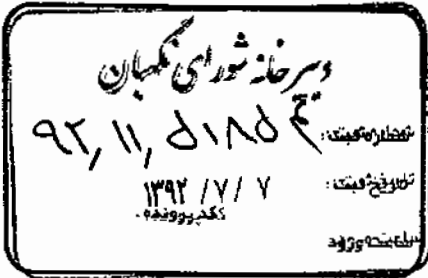 دبیرخانه شورای نگهبان
شماره ثبت: ۹۲٫۱۱٫۵۱۸۵
تاریخ ثبت: ۱۳۹۲/۷/۷
کد پرونده:
ساعت ورود